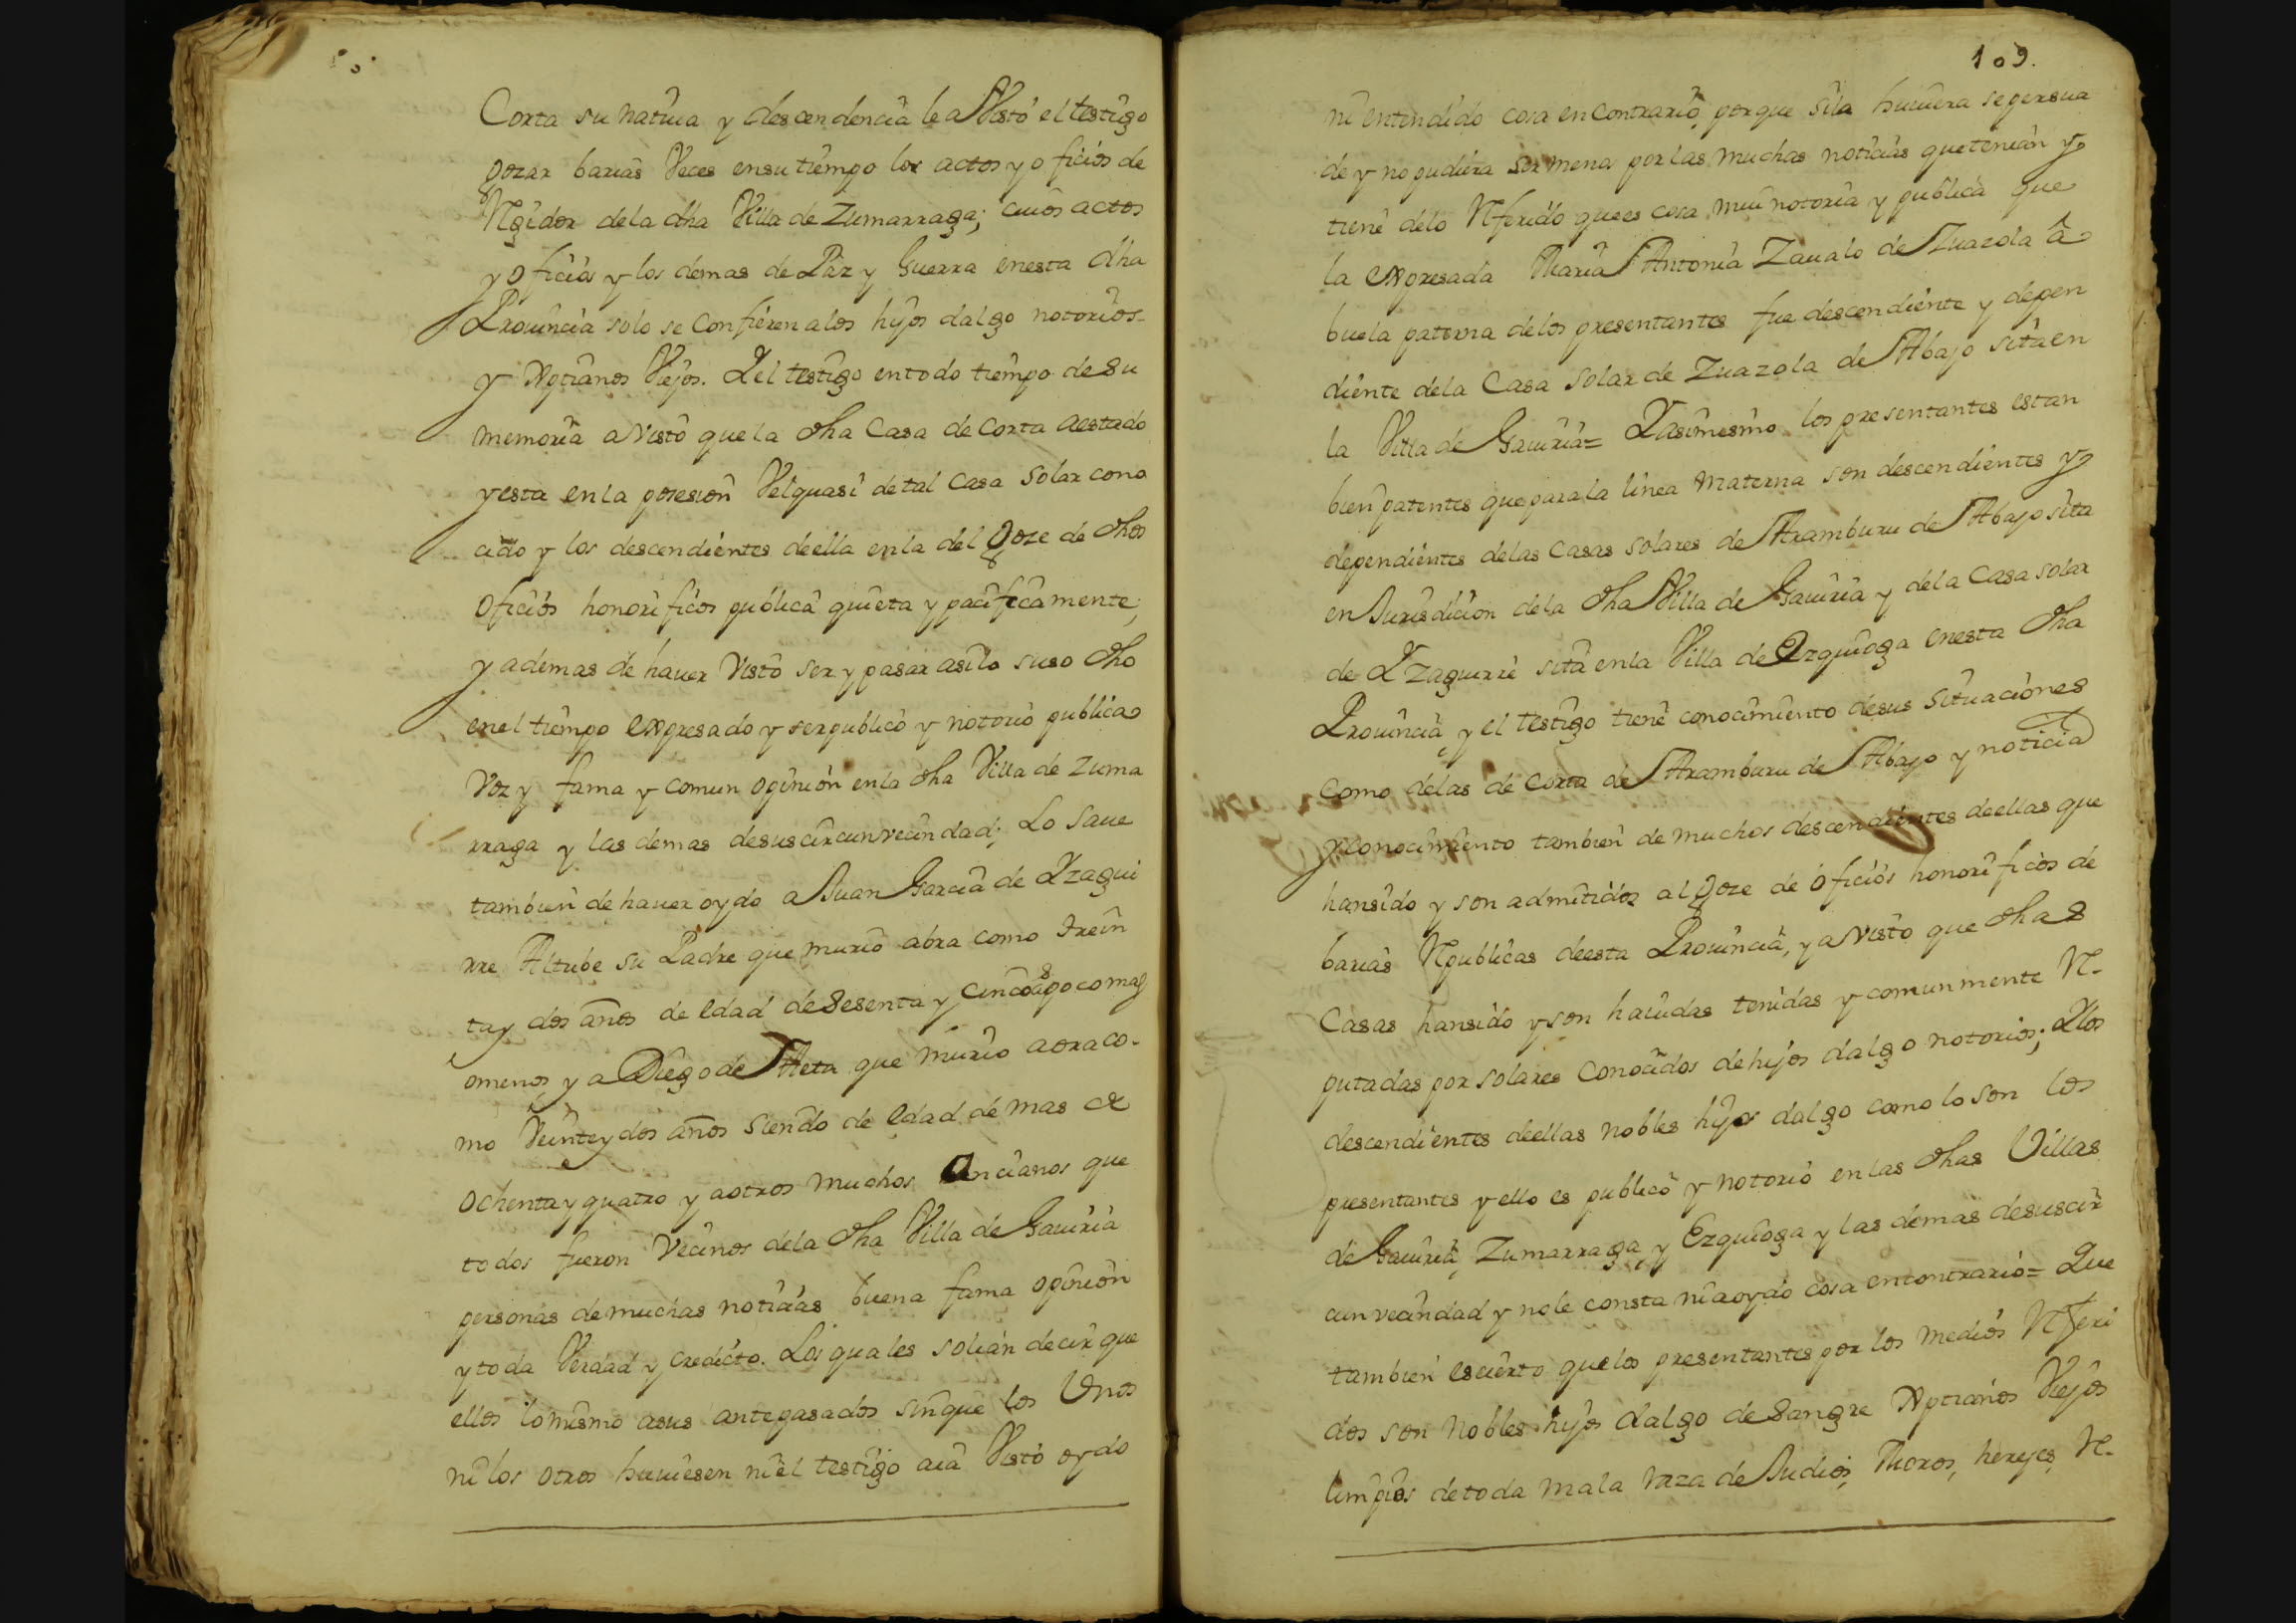 Corta su natiua y descendencia le a Visto el testigo
gozar barias Veces en su tiempo los actos y oficios de
Regidor de la dha Villa de Zumarraga; cuios actos
y oficios y los demas de Paz y Guerra en esta dha
Prouincia solo se confieren a los hijos dalgo notorios
y Xptianos Viejos. Y el testigo en todo tiempo de su
memoria a Visto que la dha Casa de Corta a estado
y esta en la posesion Vel quasi de tal Casa solar cono
cido y los descendientes de ella en la del Goze de dhos
oficios honorificos publica quieta y pacificamente,
y ademas de hauer Visto ser y pasar asi lo suso dho
en el tiempo expresado y ser publico y notorio publica
Voz y fama y comun opinion en la dha Villa de Zuma
rraga y las demas de sus circunvecindad; Lo saue
tambien de hauer oydo a Juan Garcia de Yzagui
rre Altube su Padre que murio abra como trein
ta y dos años de edad de sesenta y cinco años poco mas
o menos y a Diego de Aeta que murio aora co-
mo Veinte y dos años siendo de edad de mas de
ochenta y quatro y a otros muchos Ancianos que
todos fueron Vecinos de la dha Villa de Gauiria
personas de muchas noticias buena fama opinion
y toda Verdad y credicto. Los quales solian decir que
ellos lo mismo a sus antepasados sin que los Unos
ni los otros huuiesen ni el testigo aia Visto oydo
109.
ni entendido cosa en contrario, porque si la huuiera se persua
de y no pudiera ser menos por las muchas noticias que tenian y
tiene de lo Referido que es cosa mui notoria y publica que
la expresada Maria Antonia Zaualo de Zuazola â
buela paterna de los presentantes fue descendiente y depen
diente de la Casa solar de Zuazola de Abajo sita en
la Villa de Gauiria = Y asimesmo los presentantes estan
bien patentes que para la linea Materna son descendientes y
dependientes de las Casas solares de Aramburu de Abajo sita
en Jurisdicion de la dha Villa de Gauiria y de la Casa solar
de Yzaguirre sita en la Villa de Ezquioga en esta dha
Prouincia, y el testigo tiene conocimiento de sus situaciones
como de las de Corta de Aramburu de Abajo y noticia
y conocimiento tambien de muchos descendientes de ellas que
han sido y son admitidos al Goze de oficios honorificos de
barias Republicas de esta Prouincia, y a Visto que dhas
Casas han sido y son hauidas tenidas y comunmente Re-
putadas por solares conocidos de hijos dalgo notorios; Y los
descendientes de ellas nobles hijos dalgo como lo son los
presentantes y ello es publico y notorio en las dhas Villas
de Gauiria, Zumarraga, y Ezquioga y las demas de su cir
cunvecindad y no le consta ni a oydo cosa en contrario = Que
tambien es cierto que los presentantes por los medios Referi
dos son Nobles hijos dalgo de sangre Xptianos Viejos
limpios de toda mala raza de Judios, Moros, herejes, Re-